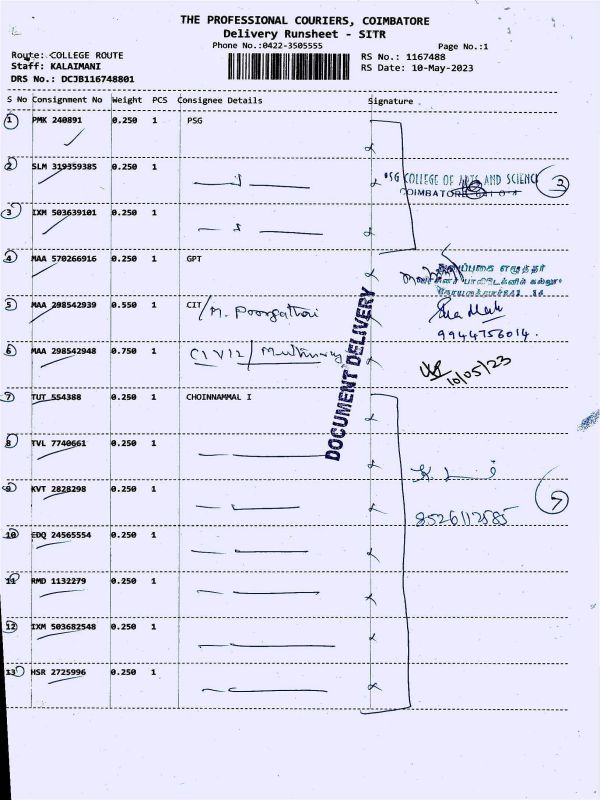 THE PROFESSIONAL COURIERS, COIMBATORE
Delivery Runsheet - SITR
Phone No.:0422-3505555
Page No.:1
Route: COLLEGE ROUTE
RS No.: 1167488
Staff: KALAIMANI
RS Date: 10-May-2023
DRS No.: DCJB116748801
S No Consignment No Weight PCS Consignee Details Signature
1 PMK 240891 0.250 1 PSG
2 SLM 319359385 0.250 1
SG COLLEGE OF ARTS AND SCIENCE
3
3 IXM 503639101 0.250 1
4 MAA 570266916 0.250 1 GPT
5 MAA 298542939 0.550 1 CIT/
9944756014.
6 MAA 298542948 0.750 1 CIVIL/
10/05/23
DOCUMENT DELIVERY
7 TUT 554388 0.250 1 CHOINNAMMAL I
8 TVL 7740661 0.250 1
9 KVT 2828298 0.250 1
7
8526112585
10 EDQ 24565554 0.250 1
11 RMD 1132279 0.250 1
12 IXM 503682548 0.250 1
13 HSR 2725996 0.250 1